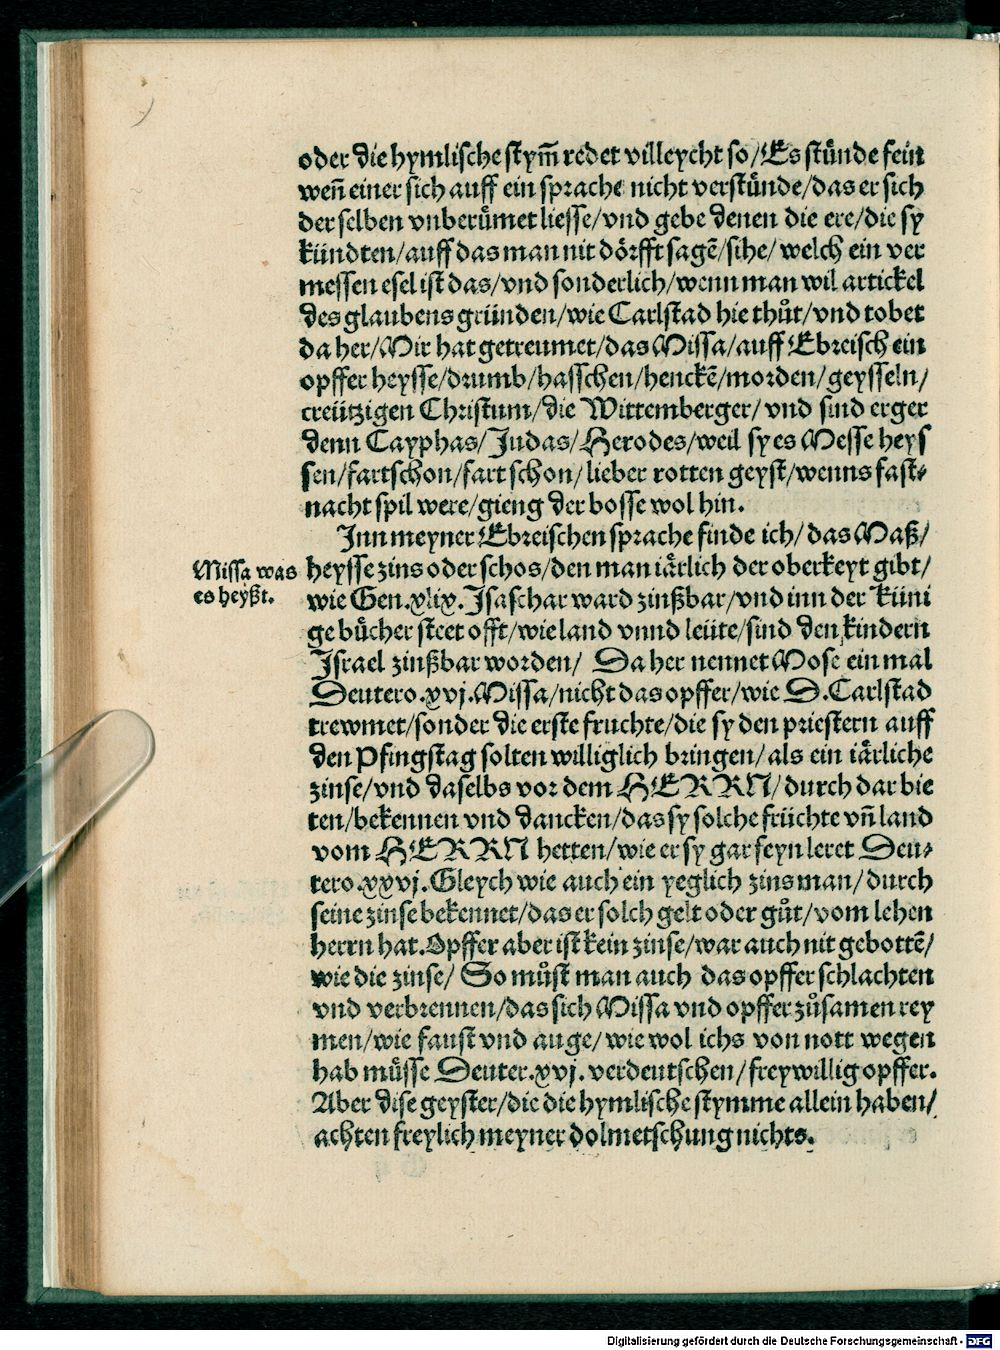 oder die hymlische stym̃ redet villeycht so/Es stünde fein
weñ einer sich auff ein sprache nicht verstünde/das er sich
der selben vnberuͤmet liesse/vnd gebe denen die ere/die sy
kündten/auff das man nit doͤrfft sagẽ/sihe/welch ein ver
messen esel ist das/vnd sonderlich/wenn man wil artickel
des glaubens gründen/wie Carlstad hie thuͦt/vnd tobet
da her/Mir hat getreumet/das Missa/auff Ebreisch ein
opffer heysse/drumb/hasschen/henckẽ/morden/geysseln/
creützigen Christum/die Wittemberger/vnd sind erger
denn Cayphas/Judas/Herodes/weil sy es Messe heys
sen/fart schon/fart schon/lieber rotten geyst/wenns fast⸗
nacht spil were/gieng der bosse wol hin.
Inn meyner Ebreischen sprache finde ich/das Maß/
Missa was
es heyßt.
heysse zins oder schos/den man iaͤrlich der oberkeyt gibt/
wie Gen.xlix. Isaschar ward zinßbar/vnd inn der Küni
ge buͤcher steet offt/wie land vnnd leüte/sind den kindern
Israel zinßbar worden/ Da her nennet Mose ein mal
Deutero.xvj.Missa/nicht das opffer/wie D.Carlstad
trewmet/sonder die erste fruchte/die sy den priestern auff
den Pfingstag solten williglich bringen/als ein iaͤrliche
zinse/vnd daselbs vor dem HERRN/durch dar bie
ten/bekennen vnd dancken/das sy solche früchte vñ land
vom HERRN hetten/wie er sy gar feyn leret Deu⸗
tero.xxvj.Gleych wie auch ein yeglich zinsman/durch
seine zinse bekennet/das er solch gelt oder guͦt/vom lehen
herrn hat.Opffer aber ist kein zinse/war auch nit gebottẽ/
wie die zinse/ So muͦst man auch das opffer schlachten
vnd verbrennen/das sich Missa vnd opffer zuͦsamen rey
men/wie faust vnd auge/wie wol ichs von nott wegen
hab muͤsse Deuter.xvj.verdeutschen/freywillig opffer.
Aber dise geyster/die die hymlische stymme allein haben/
achten freylich meyner dolmetschung nichts.
Digitalisierung gefördert durch die Deutsche Forschungsgemeinschaft - DFG